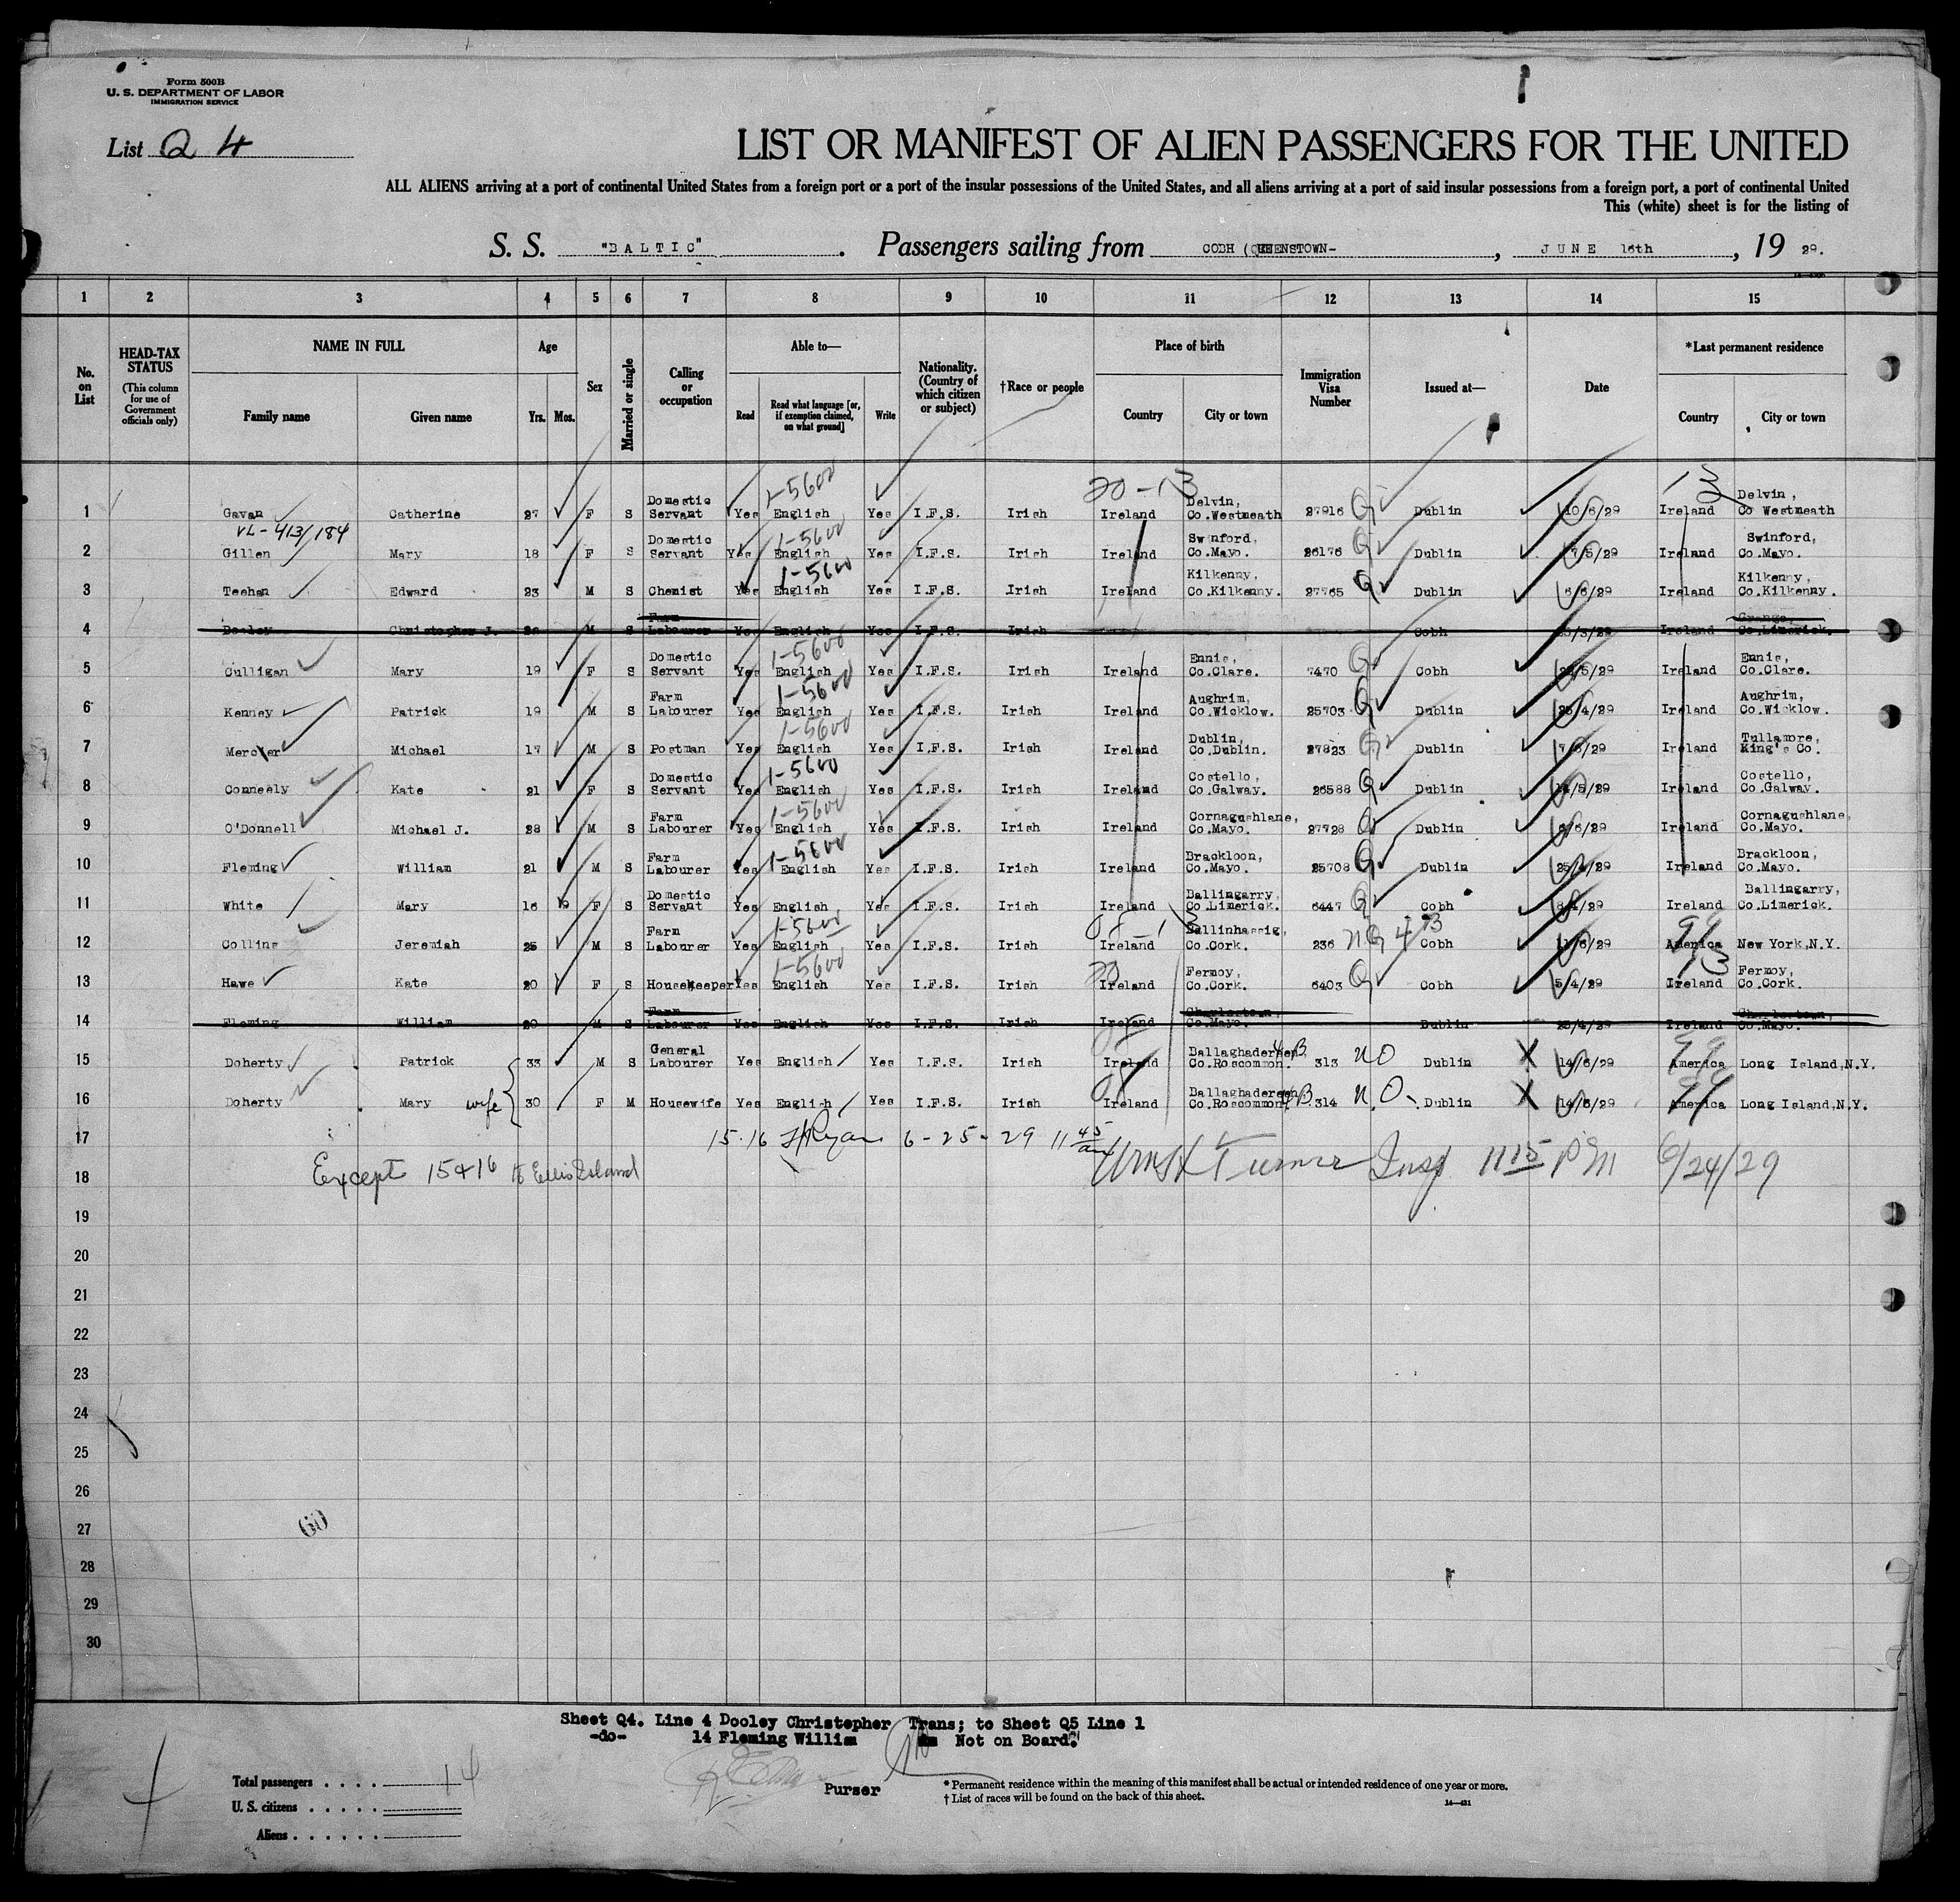 Form 500B
U. S. DEPARTMENT OF LABOR
IMMIGRATION SERVICE
List Q 4
LIST OR MANIFEST OF ALIEN PASSENGERS FOR THE UNITED
ALL ALIENS arriving at a port of continental United States from a foreign port or a port of the insular possessions of the United States, and all aliens arriving at a port of said insular possessions from a foreign port, a port of continental United
This (white) sheet is for the listing of
S. S. "BALTIC". Passengers sailing from COBH (QUEENSTOWN-, JUNE 16th, 19 29.
1 2 3 4 5 6 7 8 9 10 11 12 13 14 15
No. on List
HEAD-TAX STATUS (This column for use of Government officials only)
NAME IN FULL Family name Given name
Age Yrs. Mos.
Sex
Married or single
Calling or occupation
Able to— Read Read what language [or, if exemption claimed, on what ground] Write
Nationality. (Country of which citizen or subject)
†Race or people
Place of birth Country City or town
Immigration Visa Number
Issued at—
Date
*Last permanent residence Country City or town
1 Gavan Catherine 27 F S Domestic Servant Yes 1-5600 English Yes I.F.S. Irish 20-13 Ireland Delvin, Co.Westmeath 27916 Q Dublin 10/6/29 13 Ireland Delvin, Co Westmeath
VL-413/184
2 Gillen Mary 18 F S Domestic Servant Yes 1-5600 English Yes I.F.S. Irish Ireland Swinford, Co.Mayo. 26176 Q Dublin 7/5/29 Ireland Swinford, Co.Mayo.
3 Teehan Edward 23 M S Chemist Yes 1-5600 English Yes I.F.S. Irish Ireland Kilkenny, Co.Kilkenny. 27765 Q Dublin 6/6/29 Ireland Kilkenny, Co.Kilkenny.
4 Dooley Christopher J. M S Farm Labourer Yes English Yes I.F.S. Irish Cobh Ireland Grange, Co.Limerick.
5 Culligan Mary 19 F S Domestic Servant Yes 1-5600 English Yes I.F.S. Irish Ireland Ennis, Co.Clare. 7470 Q Cobh /5/29 Ireland Ennis, Co.Clare.
6 Kenney Patrick 19 M S Farm Labourer Yes 1-5600 English Yes I.F.S. Irish Ireland Aughrim, Co.Wicklow. 25703 Q Dublin 25/4/29 Ireland Aughrim, Co.Wicklow.
7 Mercier Michael 17 M S Postman Yes 1-5600 English Yes I.F.S. Irish Ireland Dublin, Co.Dublin. 27823 Q Dublin 7/6/29 Ireland Tullamore, King's Co.
8 Conneely Kate 21 F S Domestic Servant Yes 1-5600 English Yes I.F.S. Irish Ireland Costello, Co.Galway. 26588 Q Dublin 14/5/29 Ireland Costello, Co.Galway.
9 O'Donnell Michael J. 28 M S Farm Labourer Yes 1-5600 English Yes I.F.S. Irish Ireland Cornagushlane, Co.Mayo. 27728 Q Dublin /6/29 Ireland Cornagushlane, Co.Mayo.
10 Fleming William 21 M S Farm Labourer Yes 1-5600 English Yes I.F.S. Irish Ireland Brackloon, Co.Mayo. 25708 Q Dublin 25/4/29 Ireland Brackloon, Co.Mayo.
11 White Mary 16 F S Domestic Servant Yes English Yes I.F.S. Irish Ireland Ballingarry, Co.Limerick. 6447 Q Cobh 8/4/29 Ireland Ballingarry, Co.Limerick.
12 Collins Jeremiah 25 M S Farm Labourer Yes 1-5600 English Yes I.F.S. Irish Ireland Ballinhassig, Co.Cork. 236 NQ 4-B Cobh 11/6/29 America New York,N.Y.
13 Hawe Kate 20 F S Housekeeper Yes 1-5600 English Yes I.F.S. Irish 20 Ireland Fermoy, Co.Cork. 6403 Q Cobh 5/4/29 13 Ireland Fermoy, Co.Cork.
14 Fleming William 20 M S Farm Labourer Yes English Yes I.F.S. Irish Ireland Charlestown, Co.Mayo. Dublin 25/4/29 Ireland Charlestown, Co.Mayo.
15 Doherty Patrick 33 M S General Labourer Yes English Yes I.F.S. Irish Ireland Ballaghadereen Co.Roscommon. 4B 313 Dublin 14/6/29 America Long Island,N.Y.
16 Doherty Mary wife 30 F M Housewife Yes English Yes I.F.S. Irish Ireland Ballaghadereen Co.Roscommon. 4B 314 Dublin 14/6/29 America Long Island,N.Y.
17 15.16 Ryan 6-25-29 11 45 am
18 Except 15 & 16 to Ellis Island Turner Insp 11 15 PM 6/24/29
19
20
21
22
23
24
25
26
27
28
29
30
60
Sheet Q4. Line 4 Dooley Christopher Trans; to Sheet Q5 Line 1
-do- 14 Fleming Willim Not on Board.
Purser
Total passengers . . . . 14
U. S. citizens . . . . .
Aliens . . . . . .
* Permanent residence within the meaning of this manifest shall be actual or intended residence of one year or more.
† List of races will be found on the back of this sheet.
14—431